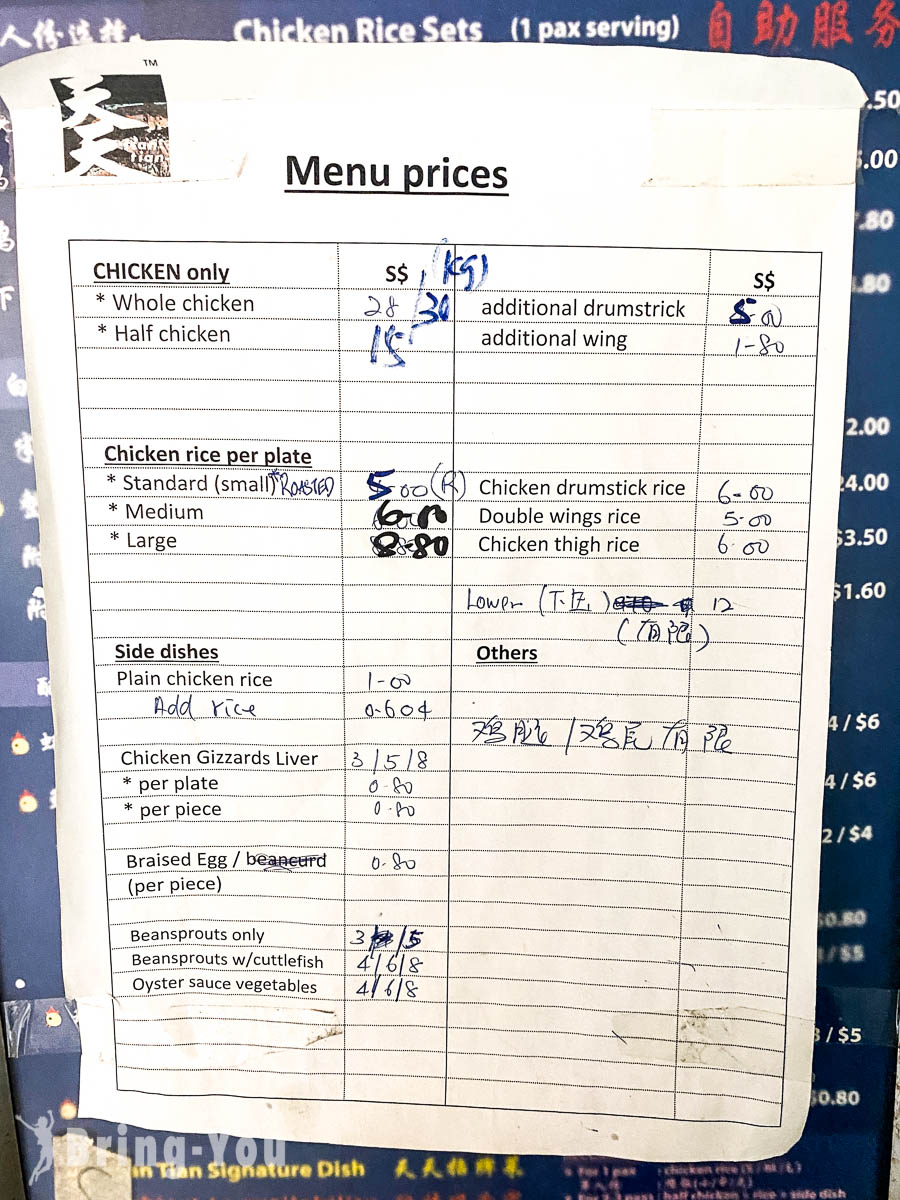 人份选择
Chicken Rice Sets (1 pax serving) 自助服务
TM
天天
tian tian
Menu prices
CHICKEN only S$ (kg) S$
* Whole chicken 28 /30 additional drumstrick 5-00
* Half chicken 15 additional wing 1-80
Chicken rice per plate
* Standard (small) *ROASTED 5 00 (R) Chicken drumstick rice 6-00
* Medium 6-00 Double wings rice 5-00
* Large 8-80 Chicken thigh rice 6-00
Lower (下庄) 12
(有限)
Side dishes Others
Plain chicken rice 1-00
Add rice 0-60¢
鸡腿 / 鸡尾 有限
Chicken Gizzards Liver 3/5/8
* per plate 0-80
* per piece 0-80
Braised Egg / beancurd 0-80
(per piece)
Beansprouts only 3 /5
Beansprouts w/cuttlefish 4/6/8
Oyster sauce vegetables 4/6/8
.50
.00
.80
.80
2.00
24.00
$3.50
$1.60
4 / $6
4 / $6
2 / $4
$0.80
/ $5
3 / $5
$0.80
Bring-You
an Tian Signature Dish 天天招牌菜